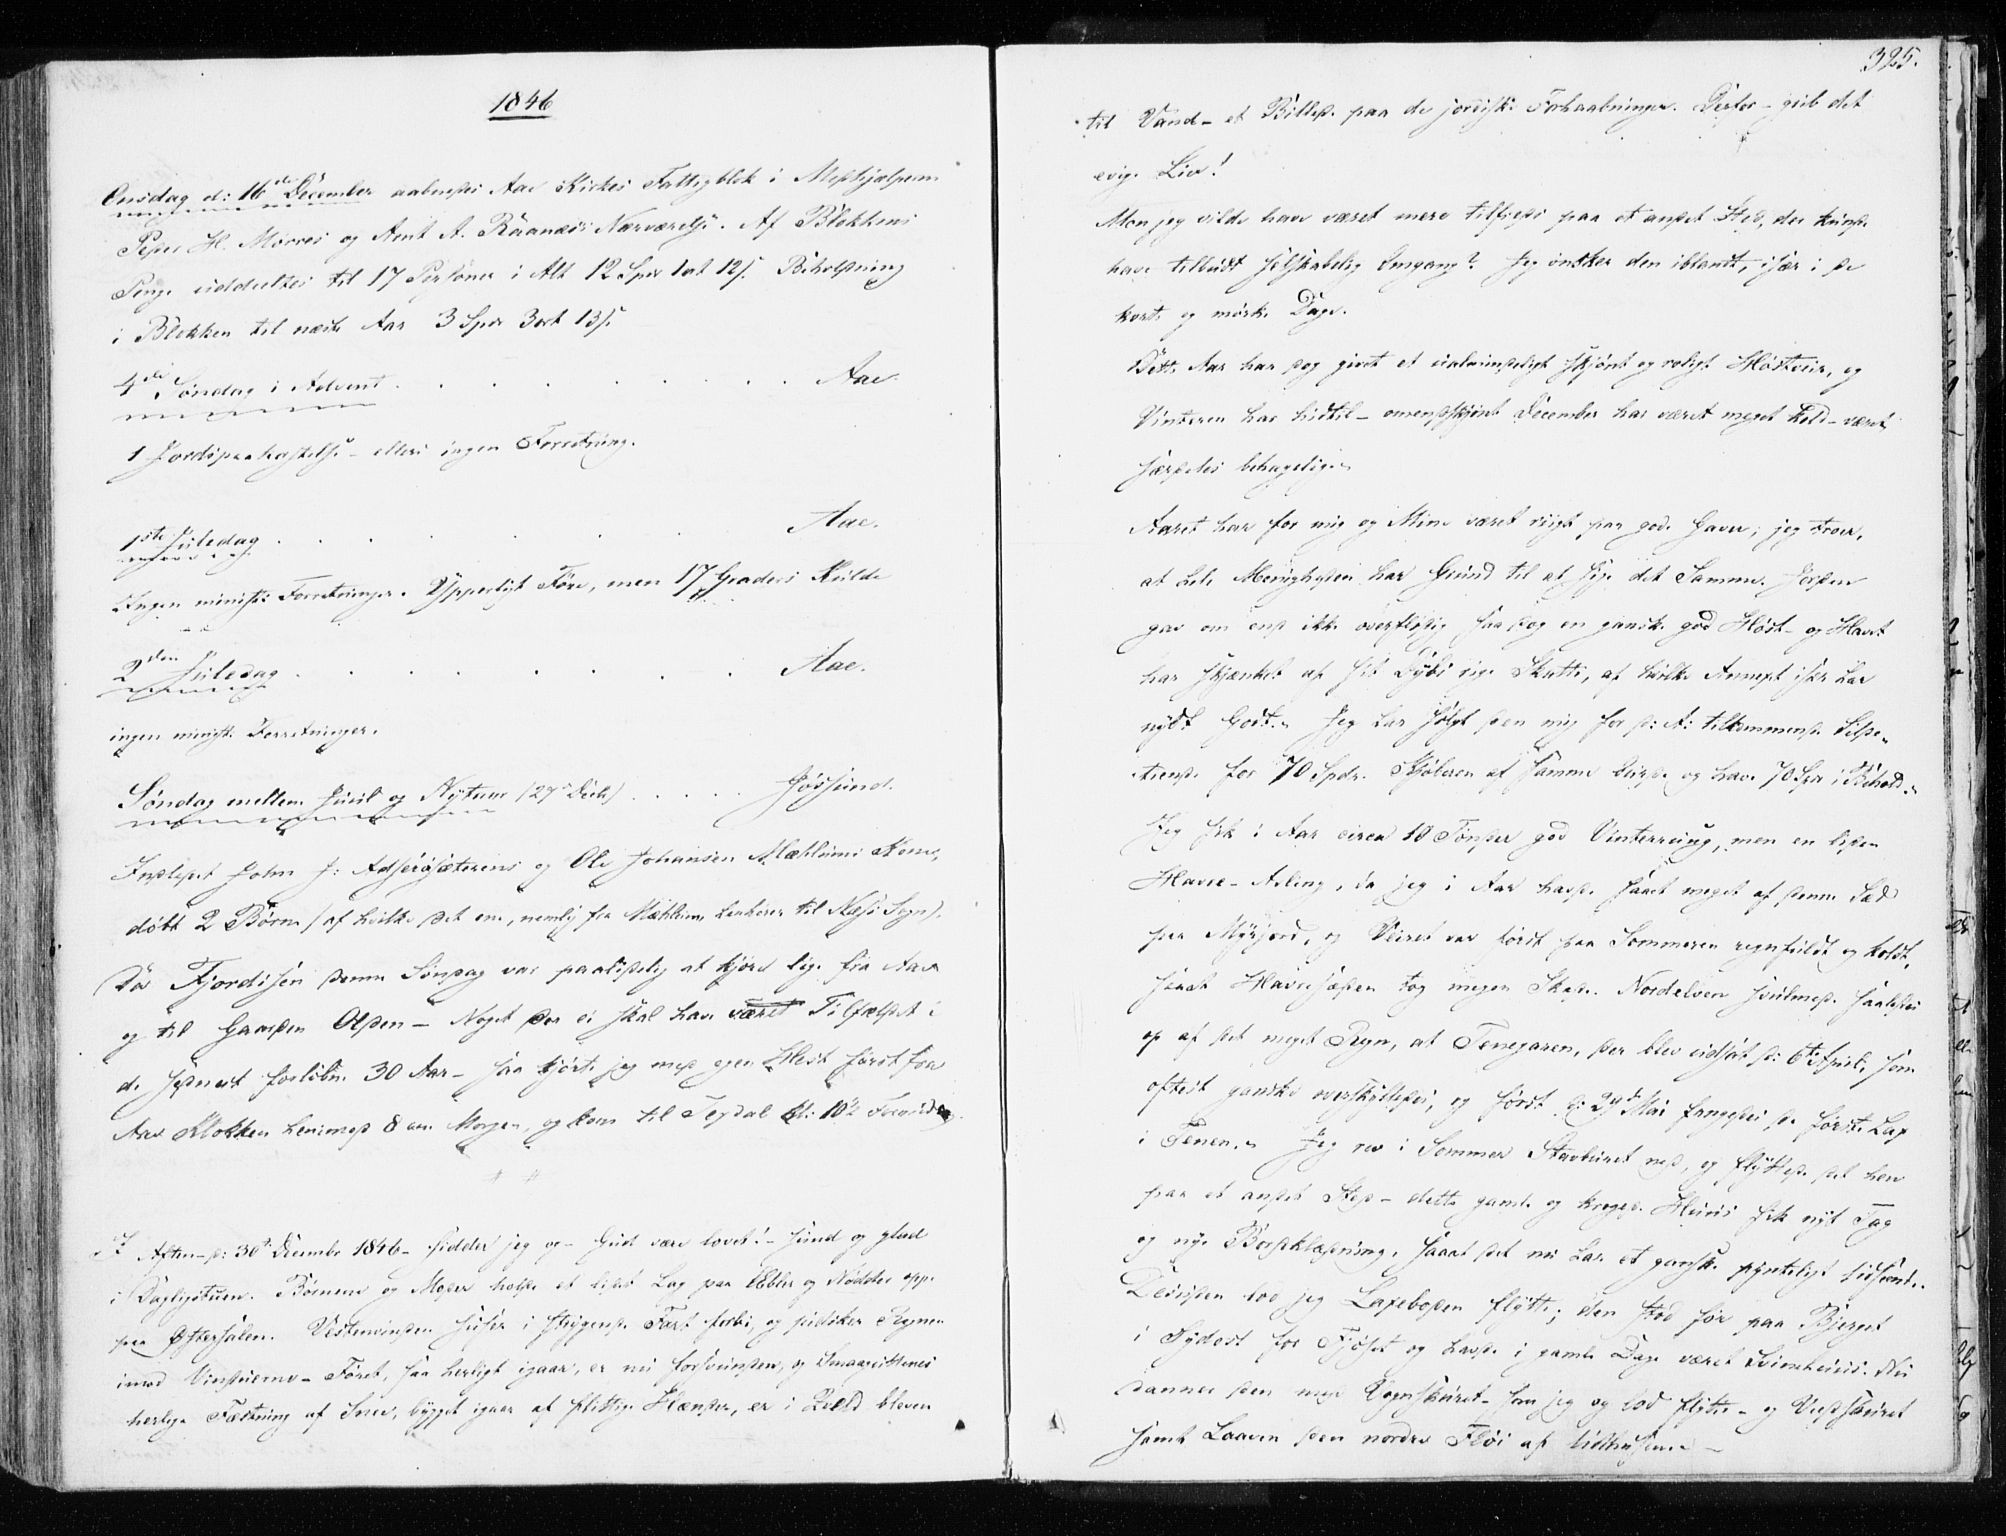 1846
Onsdag d: 16de December aabnedes Aae Kirkes Fattigblok i Medhjælperne
Peder H. Morres og Arnt A. Raanæs's Nærværelse. Af Blokkens
Penge uddeeltes til 17 Personer i Alt 12 Spd 1 ort 12 s. Beholdning
i Blokken til næste Aar 3 Spd 3 ort 13 s.
4de Søndag i Advent . . . . . . . . . Aae.
1 Jordspaakastelse - ellers ingen Forretning.
1ste Juledag . . . . . . . Aae.
Ingen minist: Forretninger. Ypperligt Føre, men 17 Graders Kulde
2den Juledag . . . . . . . . Aae.
ingen minist: Forretninger.
Søndag mellem Juul og Nytaar (27de Decb) . . . . . Jøssund.
Indledet John J: Adserøsæterens og Ole Johansen Mæhlums Kone,
døbt 2 Børn (af hvilke det ene, nemlig fra Mæhlum henhører til Næss Sogn).
Da Fjordisen denne Søndag var paalidelig at kjøre lige fra Aae
og til Gaarden Olden - Noget der ei skal have været Tilfældet i
de sidst forløbne 30 Aar - saa kjørte jeg med egen Hest først fra
Aae Klokken henimod 8 om Morgen, og kom til Teydal Kl: 10½ Formiddag.
I Aften - d: 30te December 1846 - sidder jeg og - Gud være lovet! - sund og glad
i Dagligstuen. Børnene og Moder holde et lidet Lag paa Æbler og Nødder oppe
paa Østersalen. Vestenvinden suser i flygende Fart forbi, og pidsker Regnen
imod Vinduerne - Føret, saa herligt igaar, er nu forsvunden, og Smaagutternes
herlige Fæstning af Snee, bygget igaar af flittige Hænder, er i Qveld bleven
325.
til Vand - et Billede paa de jordiske Forhaabninger. Derfor - grib det
evige Liv!
Mon jeg vilde have været mere tilfreds paa et andet Sted, der kunde
have tilbudt selskabelig Omgang? Jeg ønsker den iblandt, især i de
korte og mørke Dage.
Dette Aar har dog givet et ualmindeligt skjønt og roligt Høstveir, og
Vinteren har hidtil - omendskjønt December har været meget kold - været
særdeles behagelig.
Aaret har for mig og Mine været riigt paa gode Gaver; jeg troer,
at hele Menigheden har Grund til at sige det Samme. Jorden
gav om end ikke overflødig saa dog en ganske god Høst - og Havet
har skjænket af sit Dybs rige Skatte, af hvilke Annexet især har
nydt Godt. Jeg har solgt den mig for d: A: tilkommende Silde-
tiende for 70 Spdr. Kjøberen af samme burde og have 70 Spd i Behold.
Jeg fik i Aar circa 10 Tønder god Vinterrug, men en liden
Havre-Avling, da jeg i Aar havde saaet meget af denne Sæd
paa Myrjord, og Veiret var først paa Sommeren regnfuldt og koldt,
saaat Havresæden tog megen Skade. Nordelven svulmede saaledes
op af det meget Regn, at Tenegaren, der blev udsat d: 6te April, som
oftest ganske overskylledes, og først d: 29de Mai fangedes de første Lax
i Tenen. Jeg rev i Sommer Stavburet ned, og flyttede det hen
paa et andet Sted - dette gamle og krogede Huus fik nyt Tag
og nye Bordklædning, saaat det nu har et ganske pynteligt Udseende.
Desuden lod jeg Laxeboden flytte; den stod før paa Bjerget
i Sydost for Fjøset og havde i gamle Dage været Sviinehuus. Nu
danner den med Vognskuret - som jeg og lod flytte - og Vedskuret
samt Laaven den nordre Fløi af Udhusene -